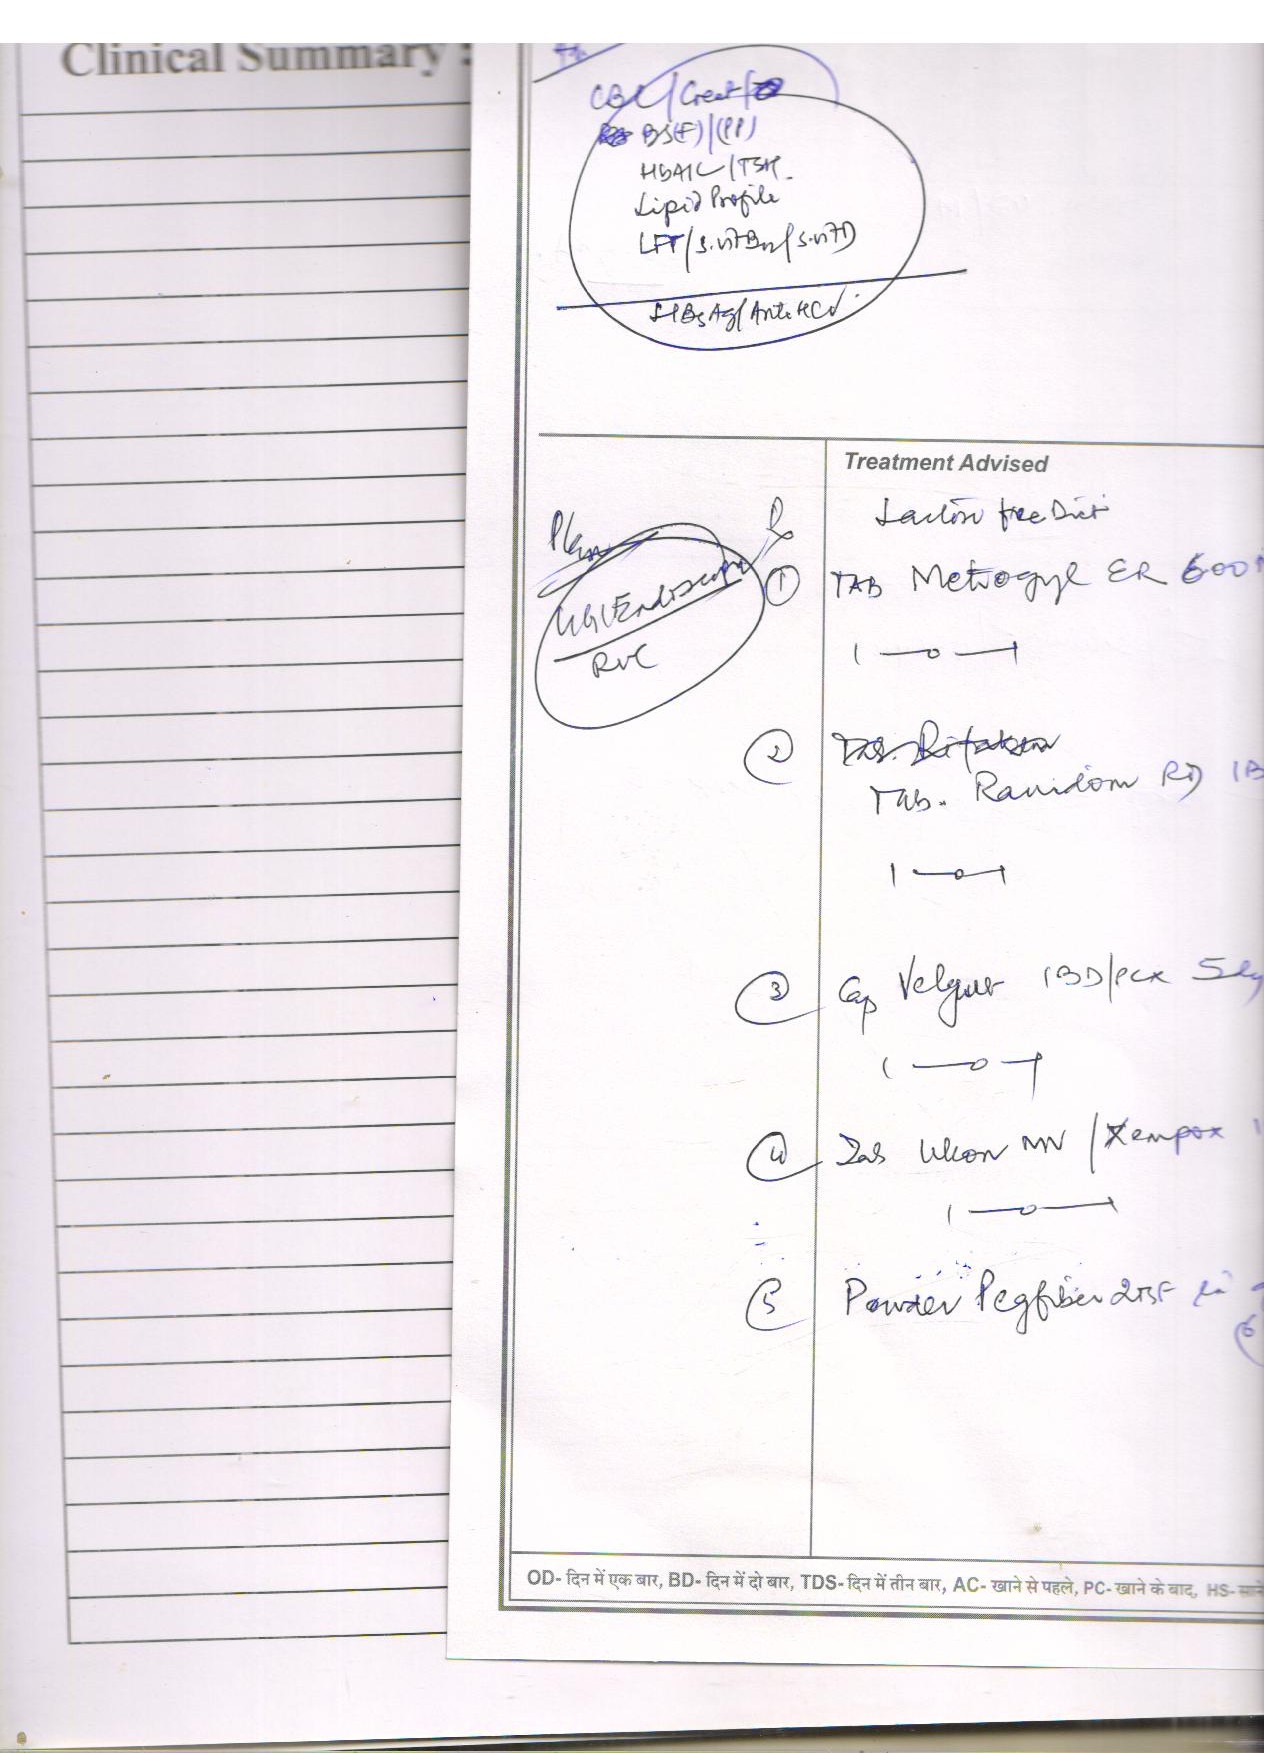 Clinical Summary :
CBC/Creat/
BS(F)/(PP)
HbA1C/TSH
Lipid Profile
LFT/S.vitB12/S.vitD
HBsAg/Anti HCV
Treatment Advised
Plan
UGI Endoscopy
RUC
Rx
Lactose free Diet
① TAB Metrogyl ER 600
1 — o — 1
②
Tab. Ranidom RD 1B
1 — o — 1
③ Cap Velgut 1BD/PC x 5
1 — o — 1
④ Tab Ukon MV / Xempox 1
1 — o — 1
⑤ Powder Pegfiber 2TSF in
6
OD- दिन में एक बार, BD- दिन में दो बार, TDS- दिन में तीन बार, AC- खाने से पहले, PC- खाने के बाद, HS-